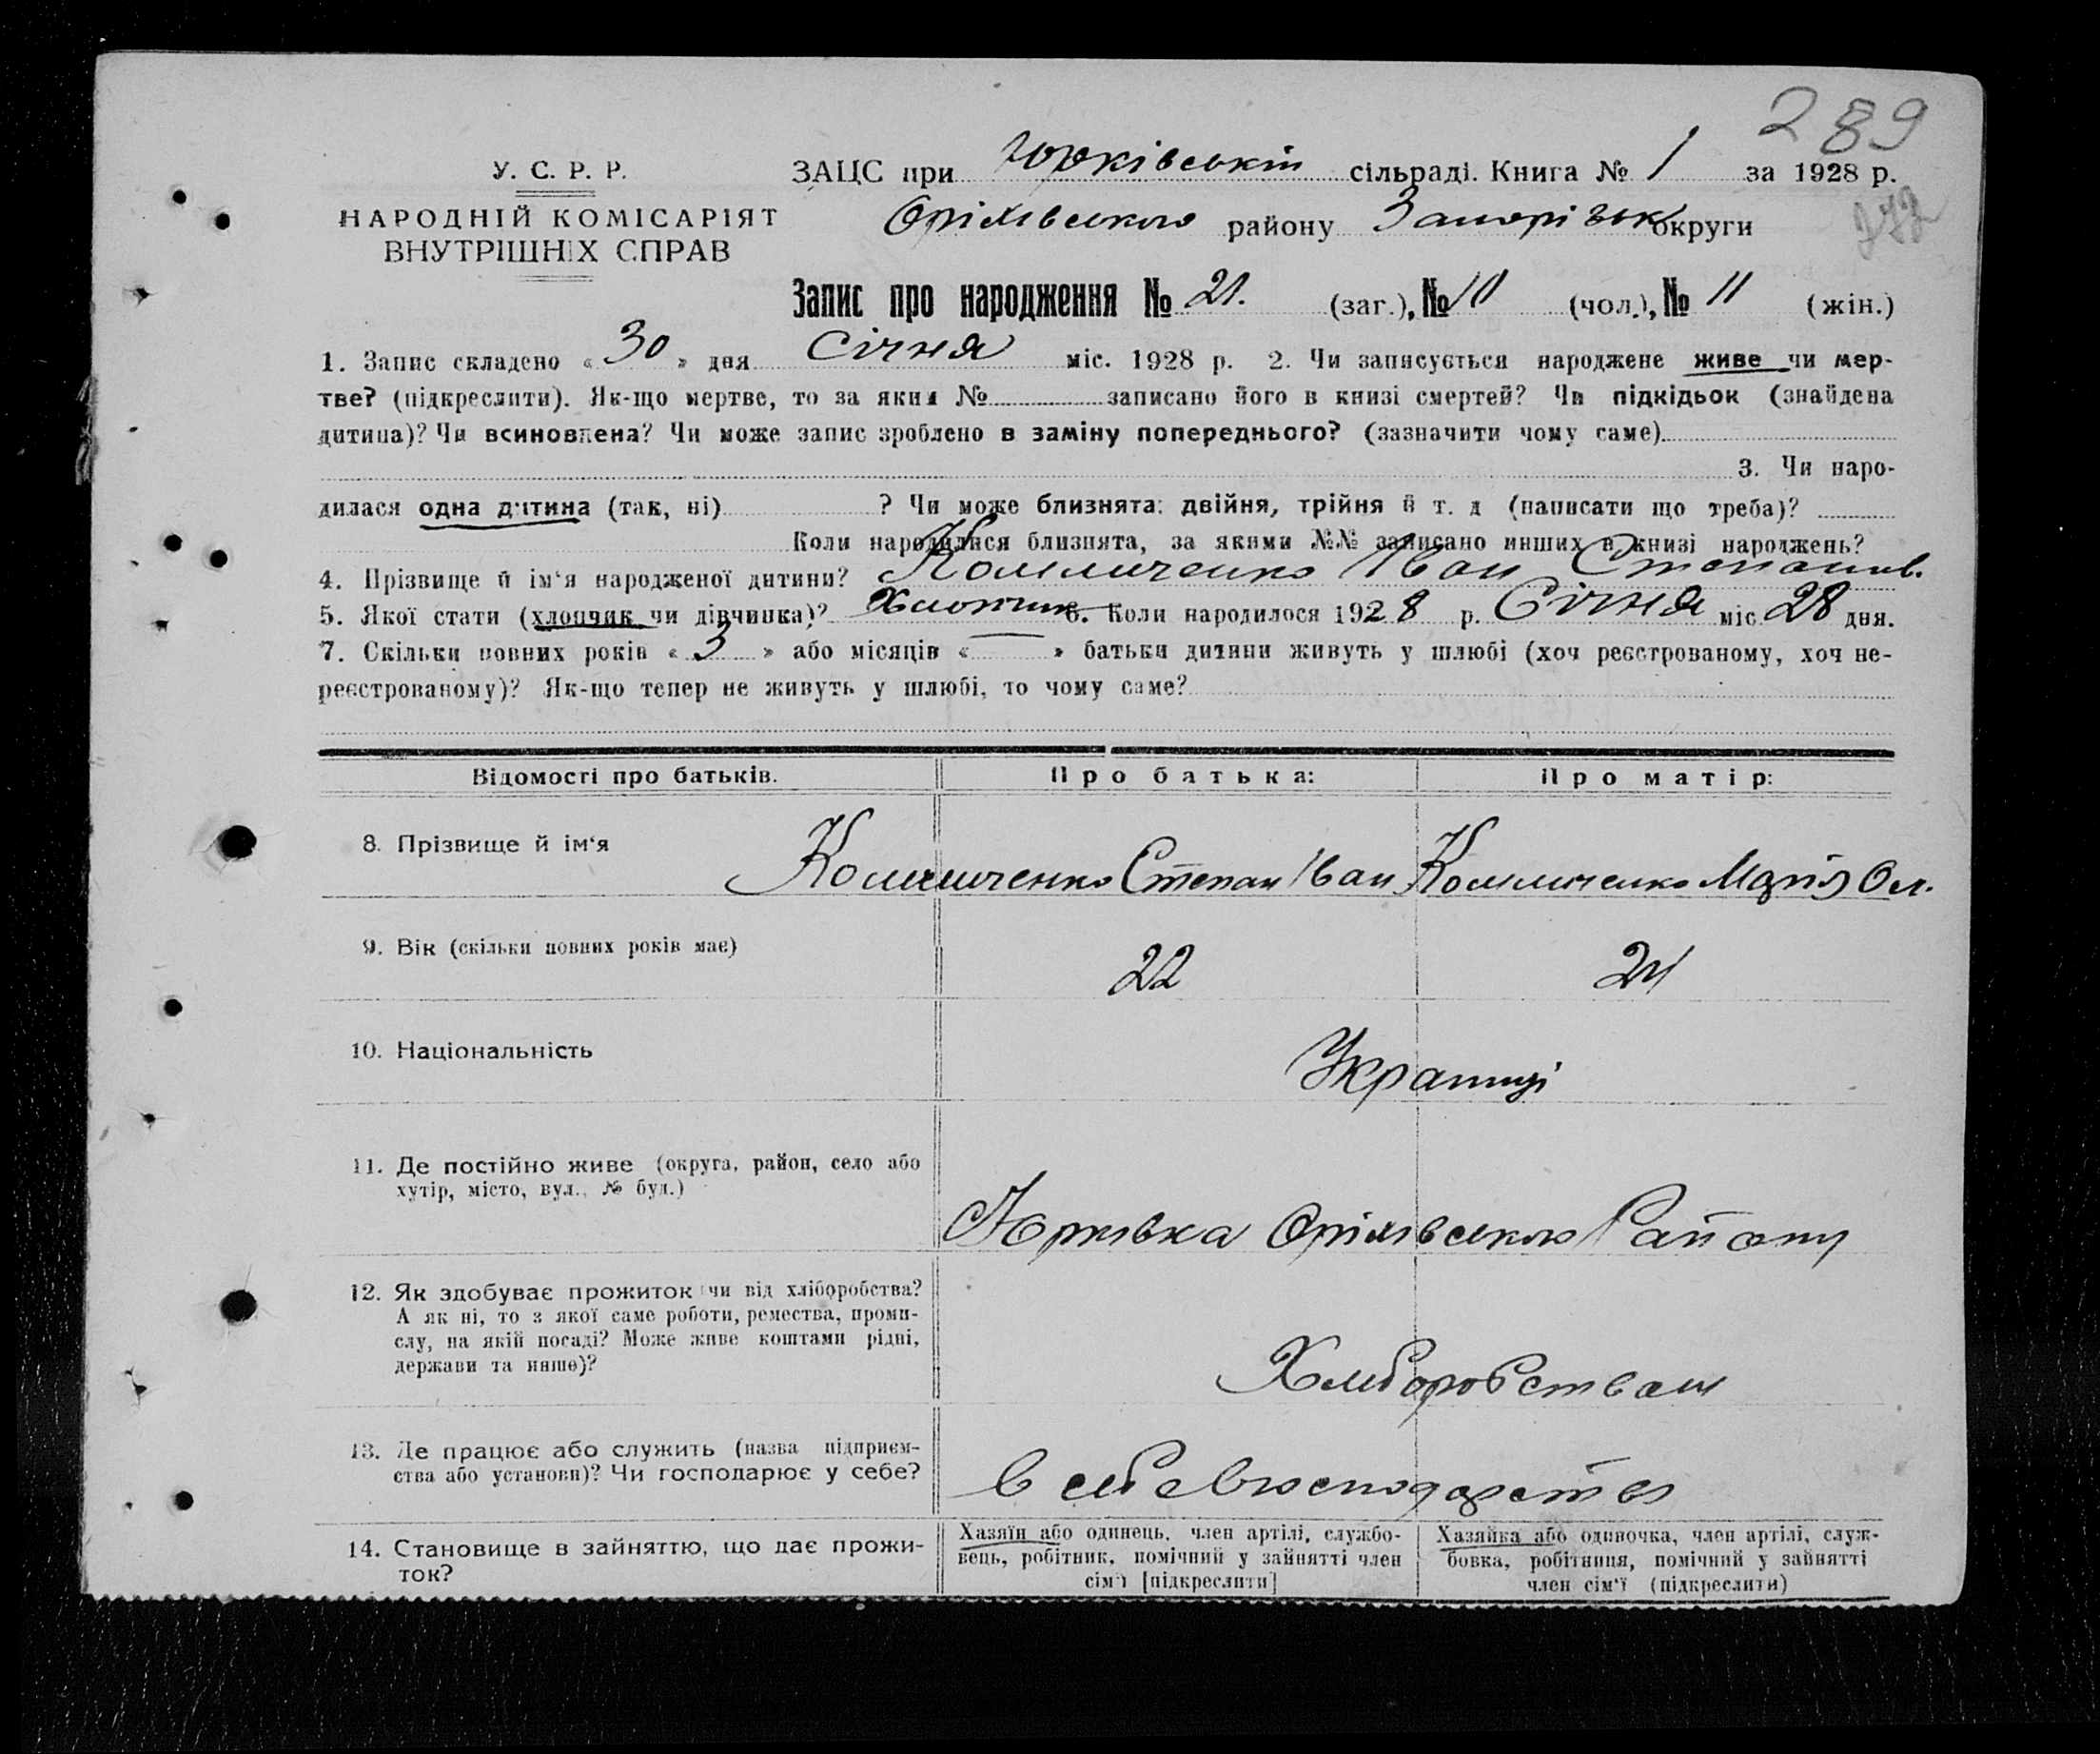 289
У. С. Р. Р.
НАРОДНІЙ КОМІСАРІЯТ
ВНУТРІШНІХ СПРАВ
ЗАЦС при Юрківській сільраді. Книга № 1 за 1928 р.
Оріхівського району Запорізьк округи
Запис про народження № 21. (заг.), № 10 (чол.), № 11 (жін.)
1. Запис складено « 30 » дня Січня міс. 1928 р. 2. Чи записується народжене живе чи мер-
тве? (підкреслити). Як-що мертве, то за яким № записано його в книзі смертей? Чи підкідьок (знайдена
дитина)? Чи всиновлена? Чи може запис зроблено в заміну попереднього? (зазначити чому саме)
3. Чи наро-
дилася одна дитина (так, ні) ? Чи може близнята: двійня, трійня й т. д (написати що треба)?
Коли народилися близнята, за якими №№ записано инших в книзі народжень?
4. Прізвище й ім‘я народженої дитини? Іван Степанов.
5. Якої стати (хлопчик чи дівчинка)? Хлопчик 6. Коли народилося 1928 р. Січня міс. 28 дня.
7. Скільки повних років « 3 » або місяців « — » батьки дитини живуть у шлюбі (хоч реєстрованому, хоч не-
реєстрованому)? Як-що тепер не живуть у шлюбі, то чому саме?
Відомості про батьків. Про батька: Про матір:
8. Прізвище й ім‘я Степан Іван Марія Ол.
9. Вік (скільки повних років має) 22 21
10. Національність Українці
11. Де постійно живе (округа, район, село або
хутір, місто, вул., № буд.)
Юрківка Оріхівського Району
12. Як здобуває прожиток (чи від хліборобства?
А як ні, то з якої саме роботи, ремества, проми-
слу, на якій посаді? Може живе коштами рідні,
держави та инше)?
Хліборобством
13. Де працює або служить (назва підприєм-
ства або установи)? Чи господарює у себе?
в себе в господарстві
14. Становище в зайняттю, що дає прожи-
ток?
Хазяїн або одинець, член артілі, службо-
вець, робітник, помічний у зайнятті член
сім‘ї [підкреслити]
Хазяйка або одиночка, член артілі, служ-
бовка, робітниця, помічний у зайнятті
член сім‘ї (підкреслити)